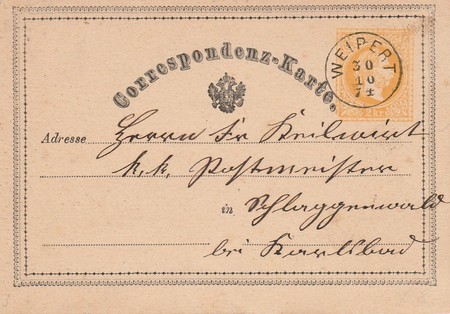 Correspondenz-Karte.
WEIPERT
30
10
74
Adresse Herrn Fr Keilwirt
k.k. Postmeister
in Schlaggenwald
bei Karlsbad